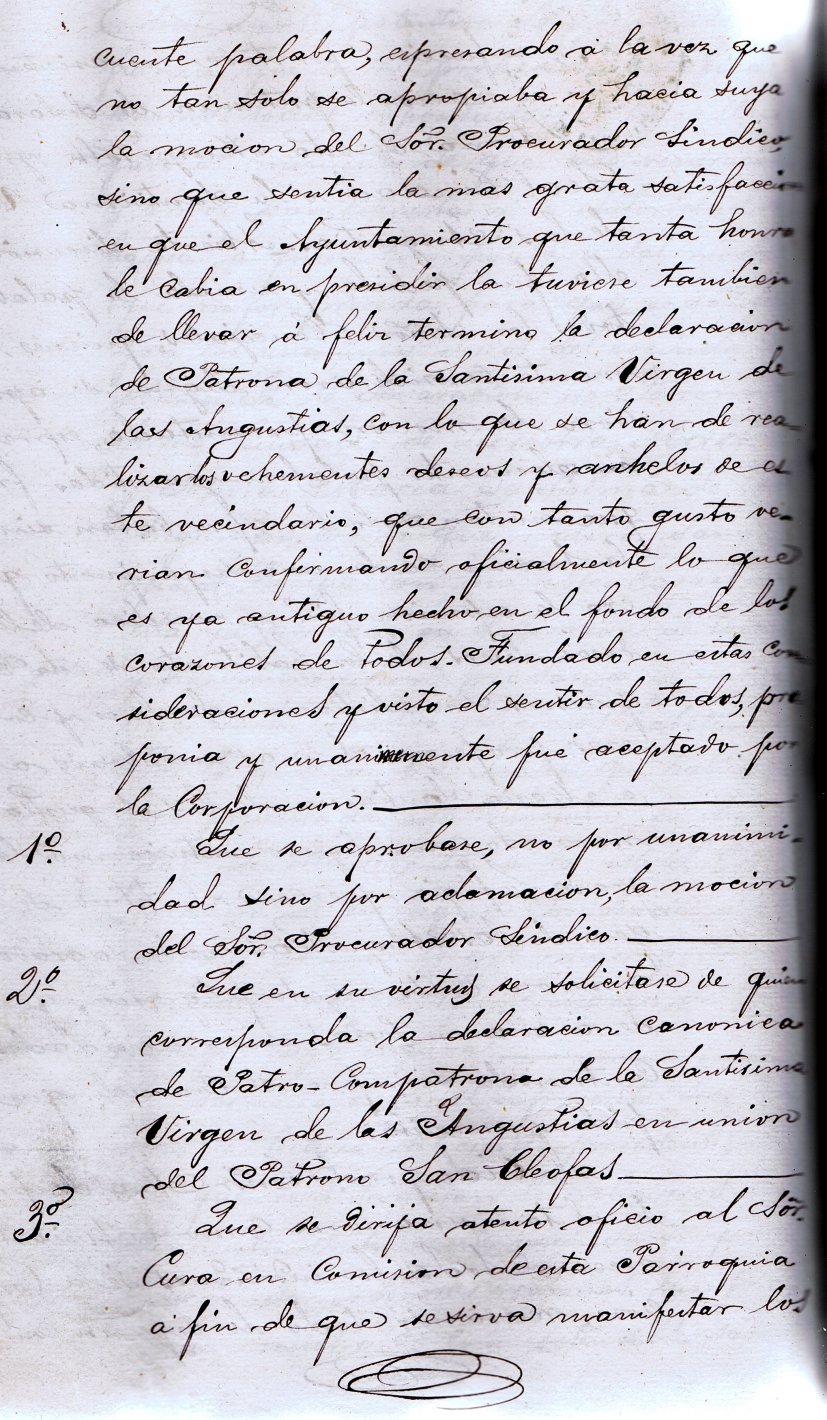 cuente palabra, espresando á la vez que
no tan solo se apropiaba y hacia suya
la mocion del Sōr. Procurador Síndico,
sino que sentia la mas grata satisfaccion
en que el Ayuntamiento que tanta honra
le cabia en presidir la tuviese tambien
de llevar á feliz termino la declaracion
de Patrona de la Santisima Virgen de
las Angustias, con lo que se han de rea-
lizar los vehementes deseos y anhelos de es
te vecindario, que con tanto gusto ve-
rian confirmando oficialmente lo que
es ya antiguo hecho en el fondo de los
corazones de todos. Fundado en estas con
sideraciones y visto el sentir de todos, pro
ponia y unanimemente fué aceptado por
la Corporacion.
1º Que se aprobase, no por unanimi-
dad sino por aclamacion, la mocion
del Sōr. Procurador Síndico.
2º Que en su virtud se solicitase de quien
corresponda la declaracion canonica
de Patro-Compatrona de la Santisima
Virgen de las Angustias en union
del Patrono San Cleofas
3º Que se dirija atento oficio al Sōr.
Cura en Comision de esta Parroquia
a fin de que se sirva manifestar los